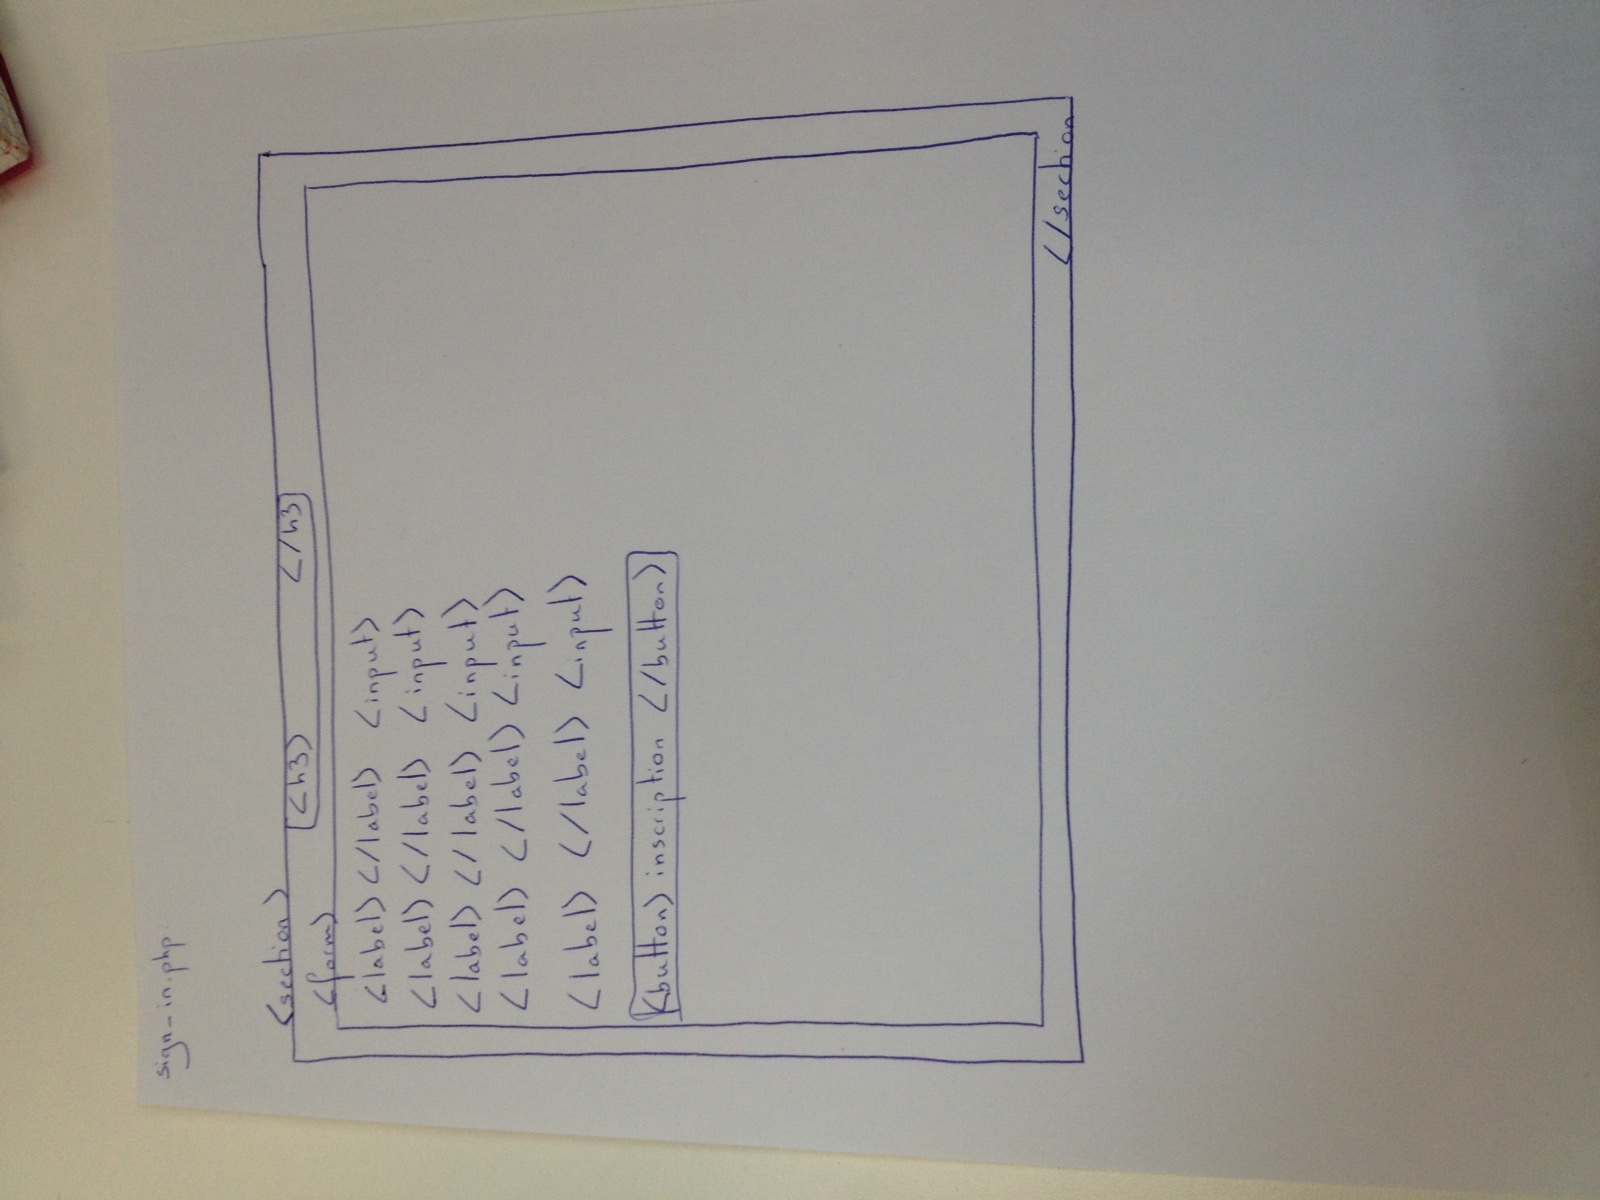 sign-in.php
<section>
<h3> </h3>
<form>
<label> </label> <input>
<label> </label> <input>
<label> </label> <input>
<label> </label> <input>
<label> </label> <input>
<button> inscription </button>
</section